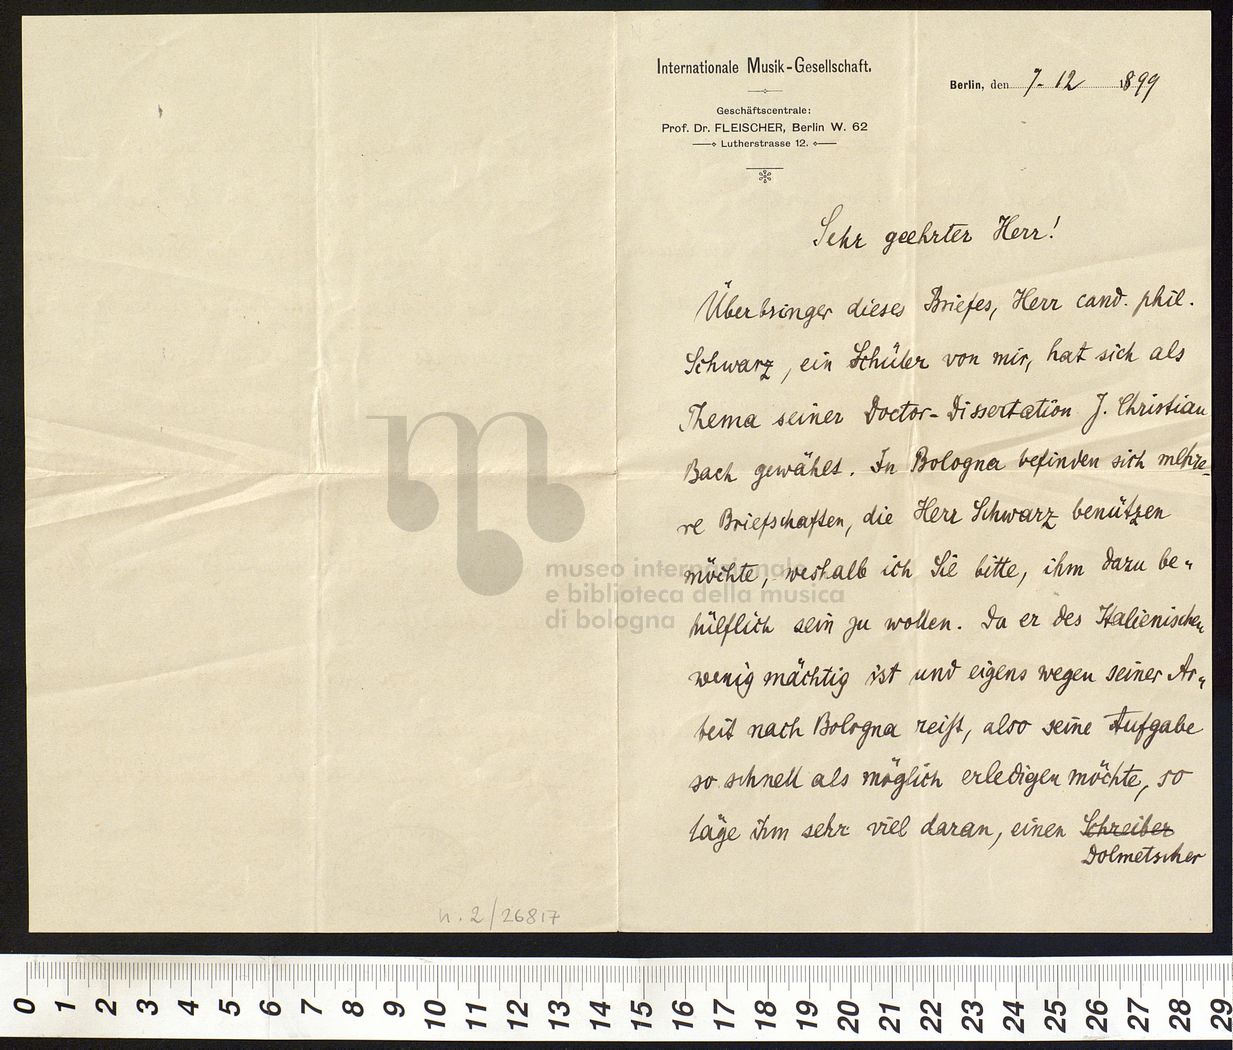 Internationale Musik-Gesellschaft.
Geschäftscentrale:
Prof. Dr. FLEISCHER, Berlin W. 62
Lutherstrasse 12.
Berlin, den 7. 12 1899
Sehr geehrter Herr!
Überbringer dieses Briefes, Herr cand. phil.
Schwarz, ein Schüler von mir, hat sich als
Thema seiner Doctor-Dissertation J. Christian
Bach gewählt. In Bologna befinden sich mehre-
re Briefschaften, die Herr Schwarz benützen
möchte, weshalb ich Sie bitte, ihm dazu be-
hülflich sein zu wollen. Da er des Italienischen
wenig mächtig ist und eigens wegen seiner Ar-
beit nach Bologna reist, also seine Aufgabe
so schnell als möglich erledigen möchte, so
läge ihm sehr viel daran, einen Schreiber
Dolmetscher
n. 2/26817
museo internazionale
e biblioteca della musica
di bologna
0 1 2 3 4 5 6 7 8 9 10 11 12 13 14 15 16 17 18 19 20 21 22 23 24 25 26 27 28 29